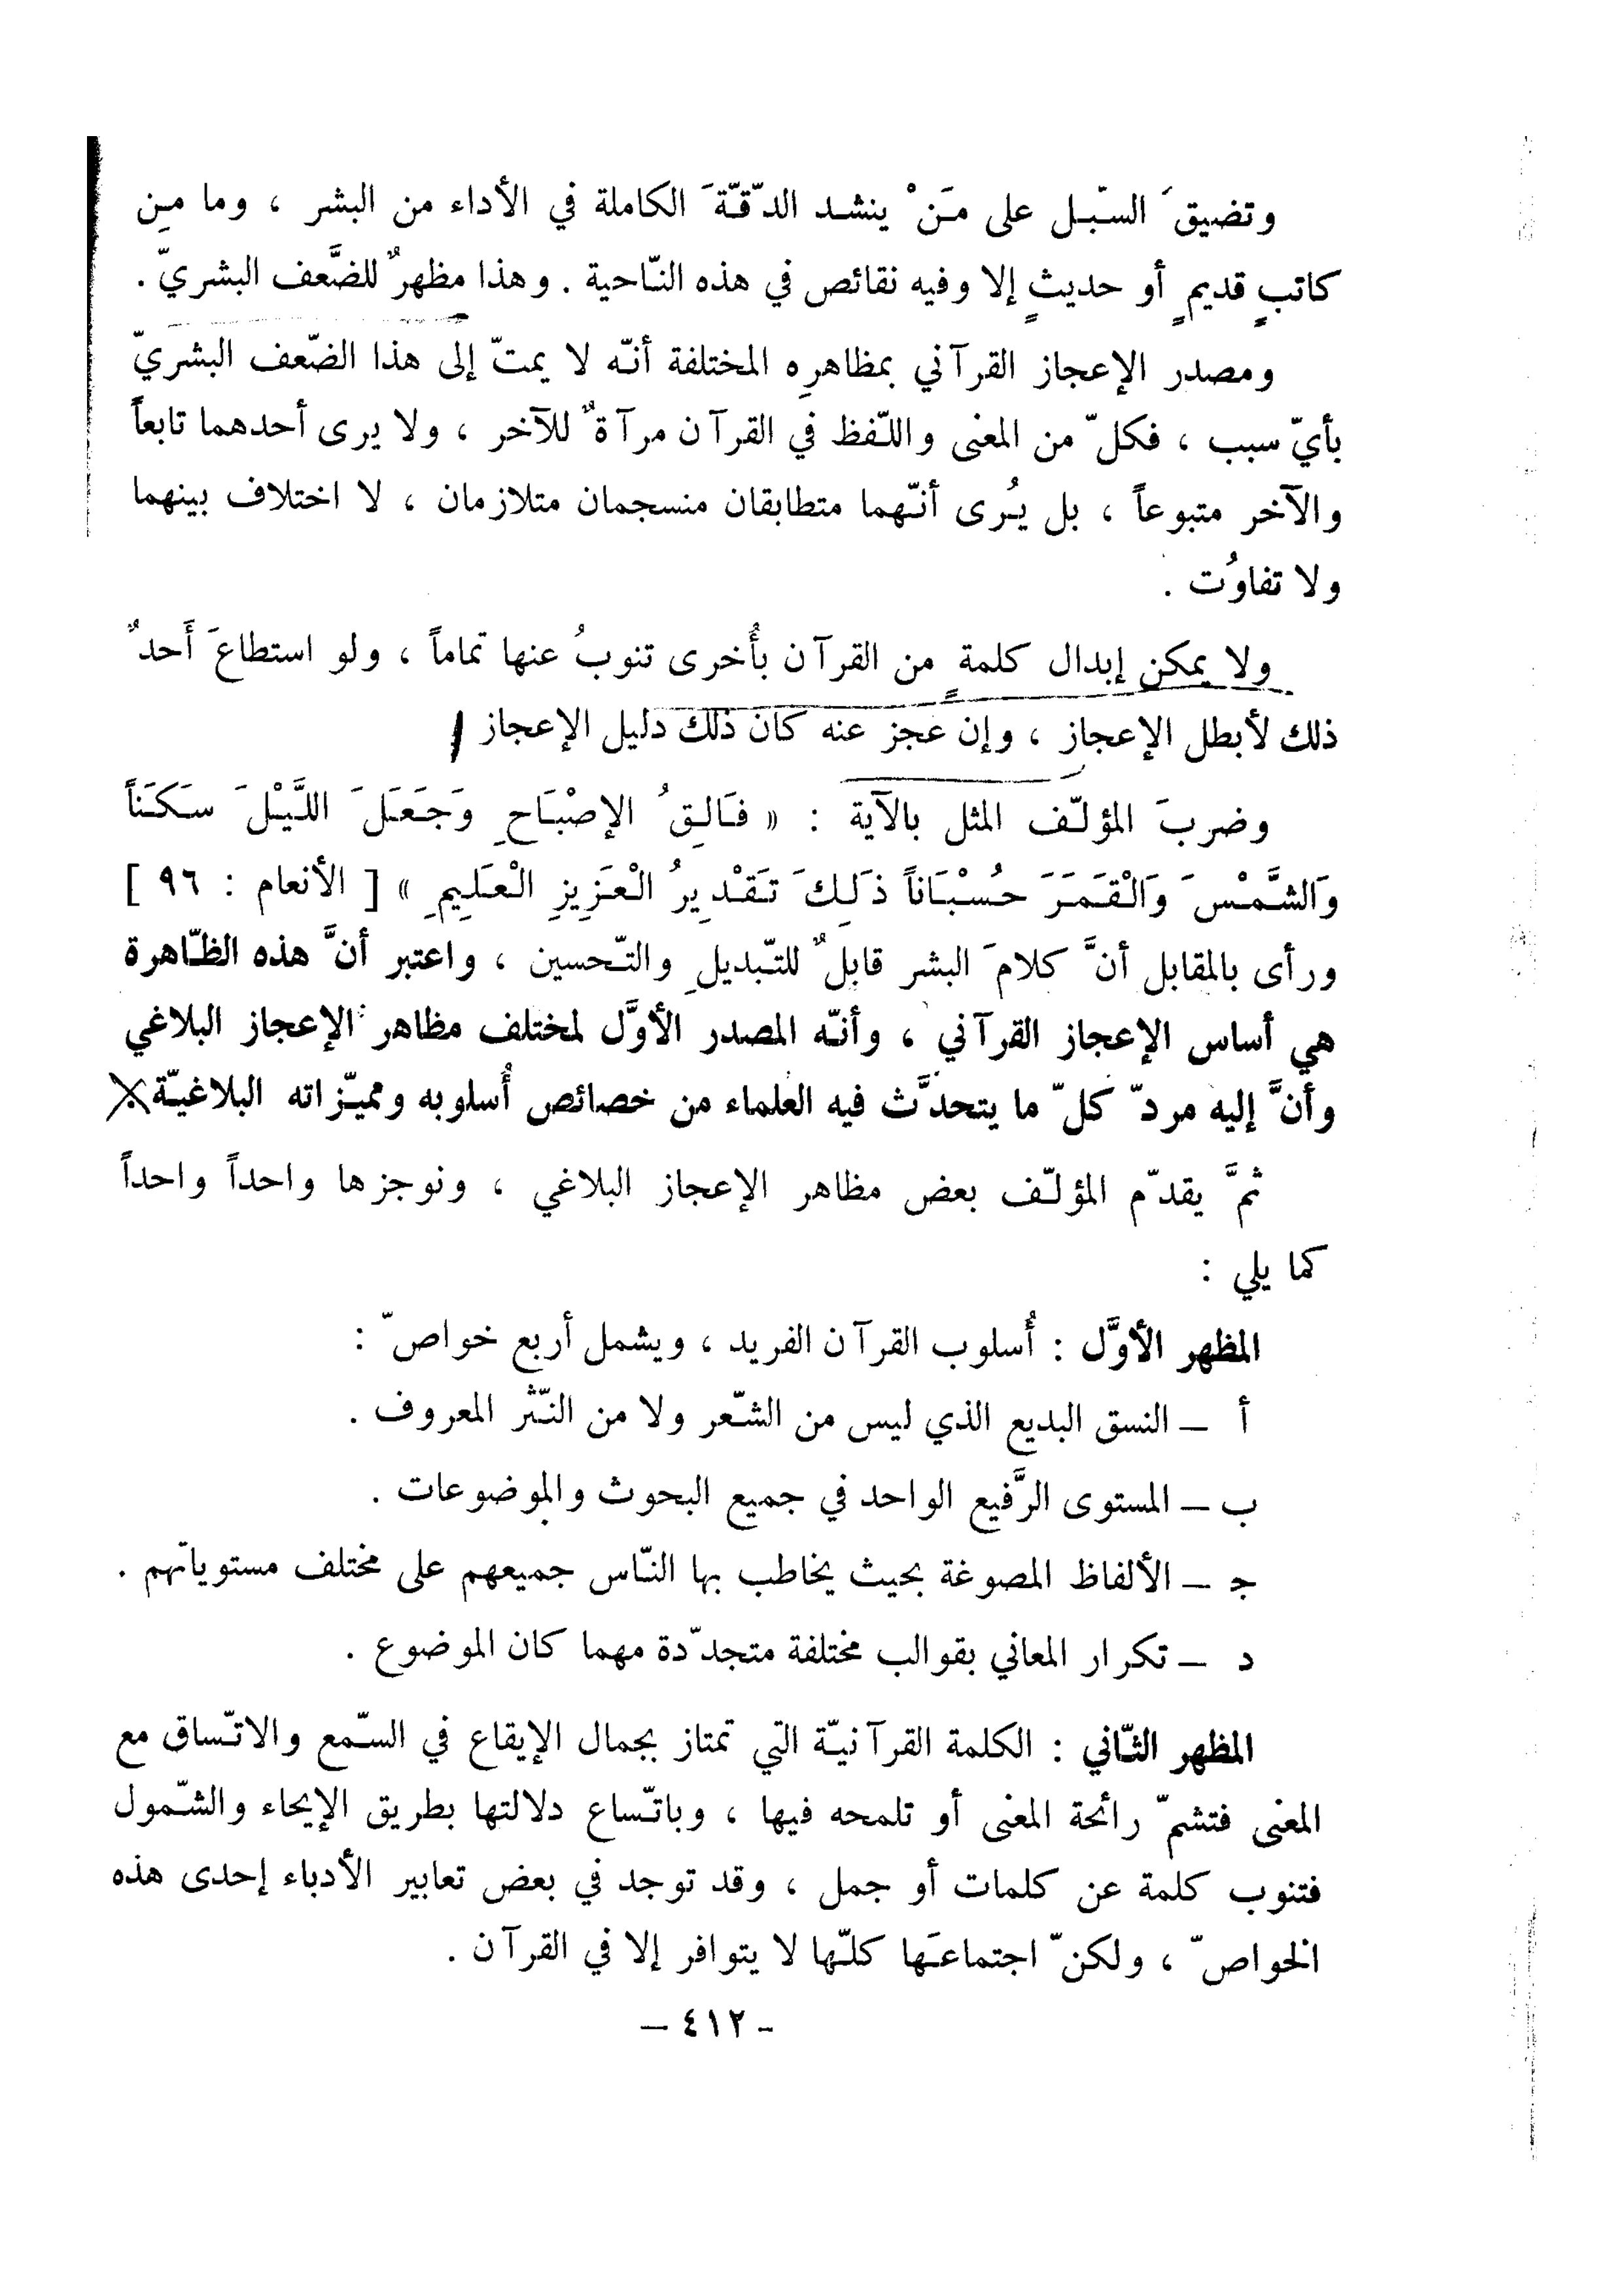 وتضيقَ السّبل على مَنْ ينشد الدّقّةَ الكاملة في الأداء من البشر ، وما مِن
كاتبٍ قديمٍ أو حديثٍ إلا وفيه نقائص في هذه النّاحية . وهذا مظهرٌ للضَّعف البشريّ .
ومصدر الإعجاز القرآني بمظاهرِه المختلفة أنّه لا يمتّ إلى هذا الضّعف البشريّ
بأيّ سبب ، فكلّ من المعنى واللّفظ في القرآن مرآةٌ للآخر ، ولا يرى أحدهما تابعاً
والآخر متبوعاً ، بل يُرى أنّهما متطابقان منسجمان متلازمان ، لا اختلاف بينهما
ولا تفاوُت .
ولا يمكن إبدال كلمةٍ من القرآن بأُخرى تنوبُ عنها تماماً ، ولو استطاعَ أَحدٌ
ذلك لأبطل الإعجاز ، وإن عجز عنه كان ذلك دليل الإعجاز
وضربَ المؤلّف المثل بالآية : « فَالِقُ الإصْبَاحِ وَجَعَلَ اللَّيْلَ سَكَنَاً
وَالشَّمْسَ وَالْقَمَرَ حُسْبَاناً ذَلِكَ تَقْدِيرُ الْعَزِيزِ الْعَلِيمِ » [ الأنعام : ٩٦ ]
ورأى بالمقابل أنَّ كلامَ البشر قابلٌ للتّبديلِ والتّحسين ، واعتبر أنَّ هذه الظّاهرة
هي أساس الإعجاز القرآني ، وأنّه المصدر الأوَّل لمختلف مظاهر الإعجاز البلاغي
وأنَّ إليه مردّ كلّ ما يتحدَّث فيه العلماء من خصائص أُسلوبه ومميّزاته البلاغيّة .
ثمَّ يقدّم المؤلّف بعض مظاهر الإعجاز البلاغي ، ونوجزها واحداً واحداً
كما يلي :
المظهر الأوَّل : أُسلوب القرآن الفريد ، ويشمل أربع خواصّ :
أ – النسق البديع الذي ليس من الشّعر ولا من النّثر المعروف .
ب – المستوى الرَّفيع الواحد في جميع البحوث والموضوعات .
جـ – الألفاظ المصوغة بحيث يخاطب بها النّاس جميعهم على مختلف مستوياتهم .
د – تكرار المعاني بقوالب مختلفة متجدّدة مهما كان الموضوع .
المظهر الثّاني : الكلمة القرآنيّة التي تمتاز بجمال الإيقاع في السّمع والاتّساق مع
المعنى فتشمّ رائحة المعنى أو تلمحه فيها ، وباتّساع دلالتها بطريق الإيحاء والشّمول
فتنوب كلمة عن كلمات أو جمل ، وقد توجد في بعض تعابير الأدباء إحدى هذه
الخواصّ ، ولكنّ اجتماعَها كلّها لا يتوافر إلا في القرآن .
- ٤١٢ –